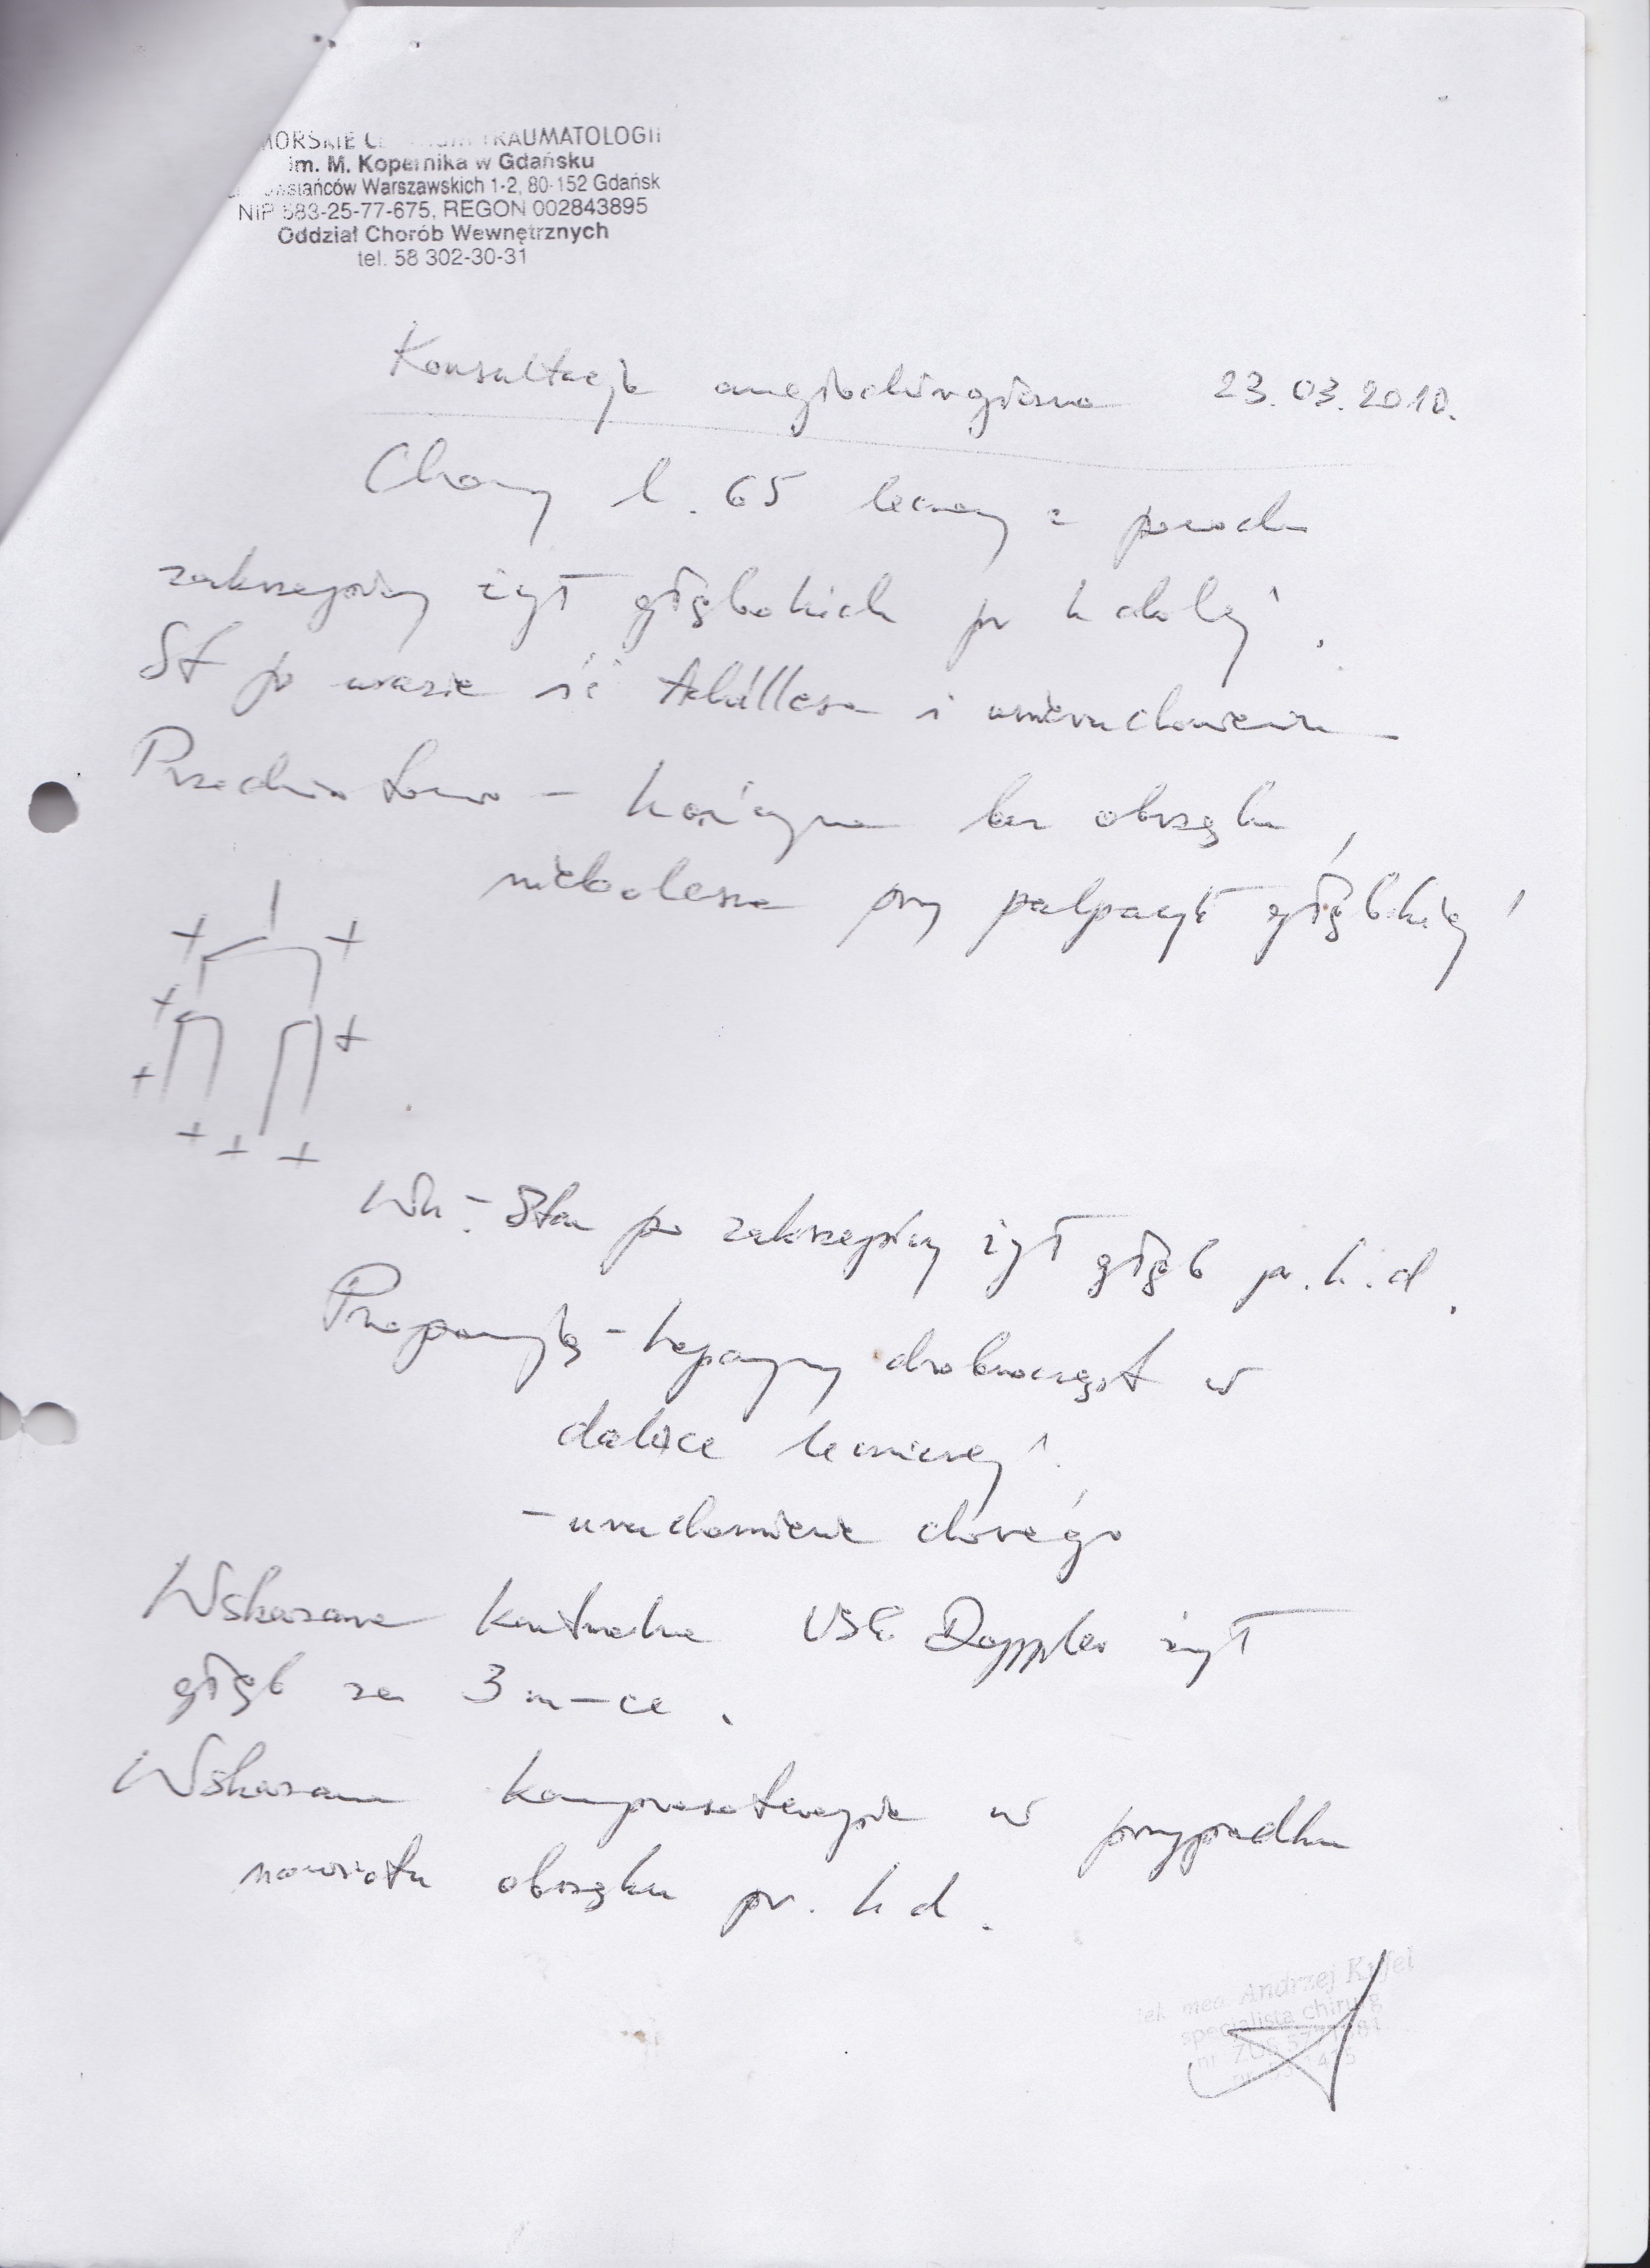 MORSKIE C TRAUMATOLOGII
im. M. Kopernika w Gdańsku
stańców Warszawskich 1-2, 80-152 Gdańsk
NIP 583-25-77-675, REGON 002843895
Oddział Chorób Wewnętrznych
tel. 58 302-30-31
Konsultacja angiochirurgiczna 23.03.2010.
Chory l. 65 leczony z powodu
zakrzepicy żył głębokich pr k dolnej.
St po urazie ść Achillesa i unieruchomieniu
Przedmiotowo - kończyna bez obrzęku,
niebolesna przy palpacji głębokiej
+ +
+
+
+
+ + +
Wn - Stan po zakrzepicy żył głęb pr. k. d.
Proponuję - heparyny drobnocząst w
dawce leczniczej.
- uruchomienie chorego
Wskazana kontrola USG Doppler żył
głęb za 3 m-ce.
Wskazana kompresoterapia w przypadku
nawrotu obrzęku pr. k d.
lek. med. Andrzej
specjalista chirurg
nr